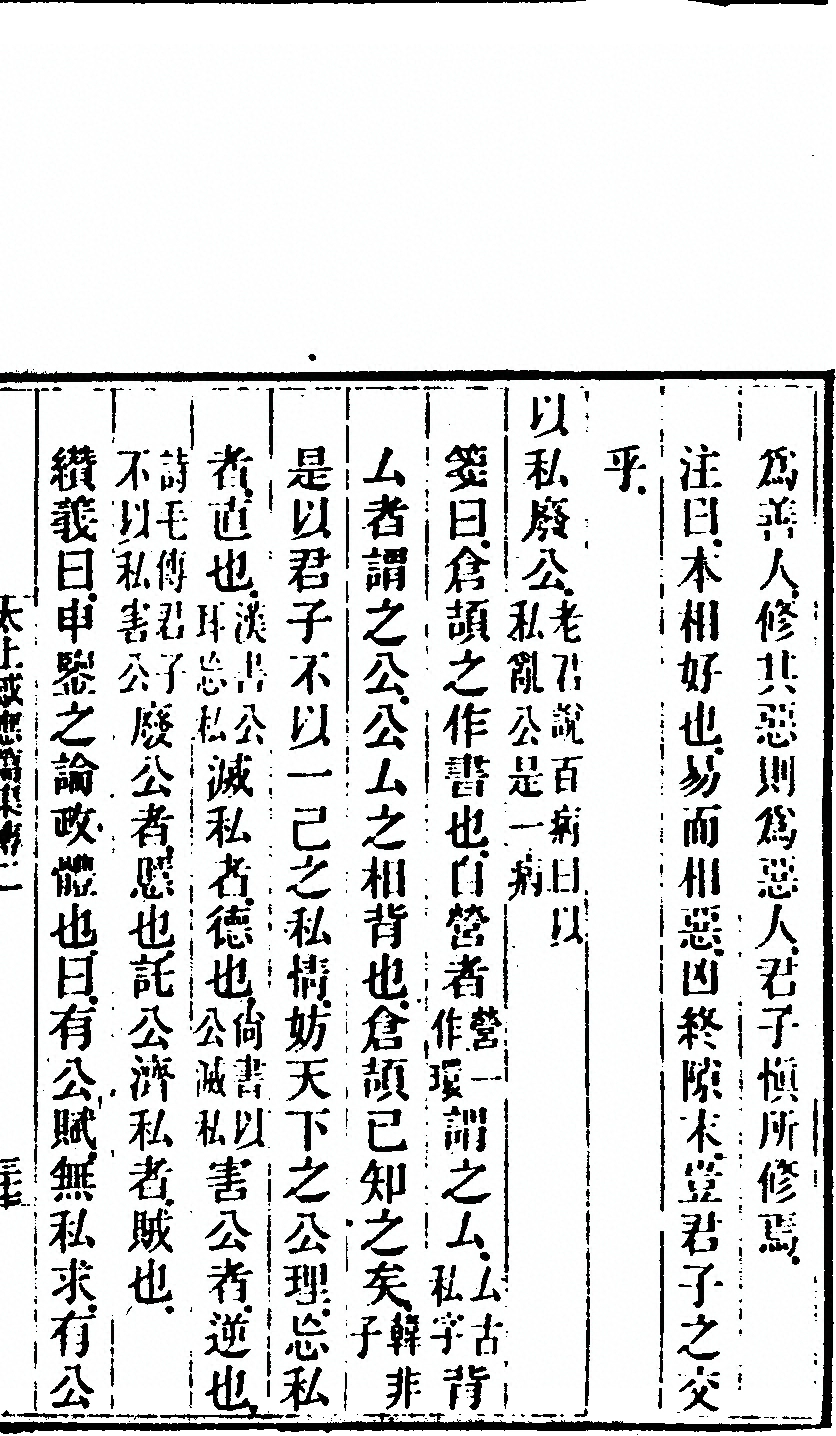 爲善人。修其惡則爲惡人。君子愼所修焉。
注曰。本相好也。易而相惡。凶終隙末。豈君子之交
乎。
以私廢公。老君說百病曰以私亂公是一病
箋曰。倉頡之作書也。自營者營一作環謂之厶。厶古私字背
厶者謂之公。公厶之相背也。倉頡已知之矣。韓非子
是以君子不以一己之私情。妨天下之公理。忘私
者。直也。漢書公耳忘私滅私者。德也。尙書以公滅私害公者。逆也。
詩毛傳君子不以私害公廢公者。慝也。託公濟私者。賊也。
纘義曰。申鑒之論政體也。曰。有公賦。無私求。有公
太上感應篇集傳二
三十七